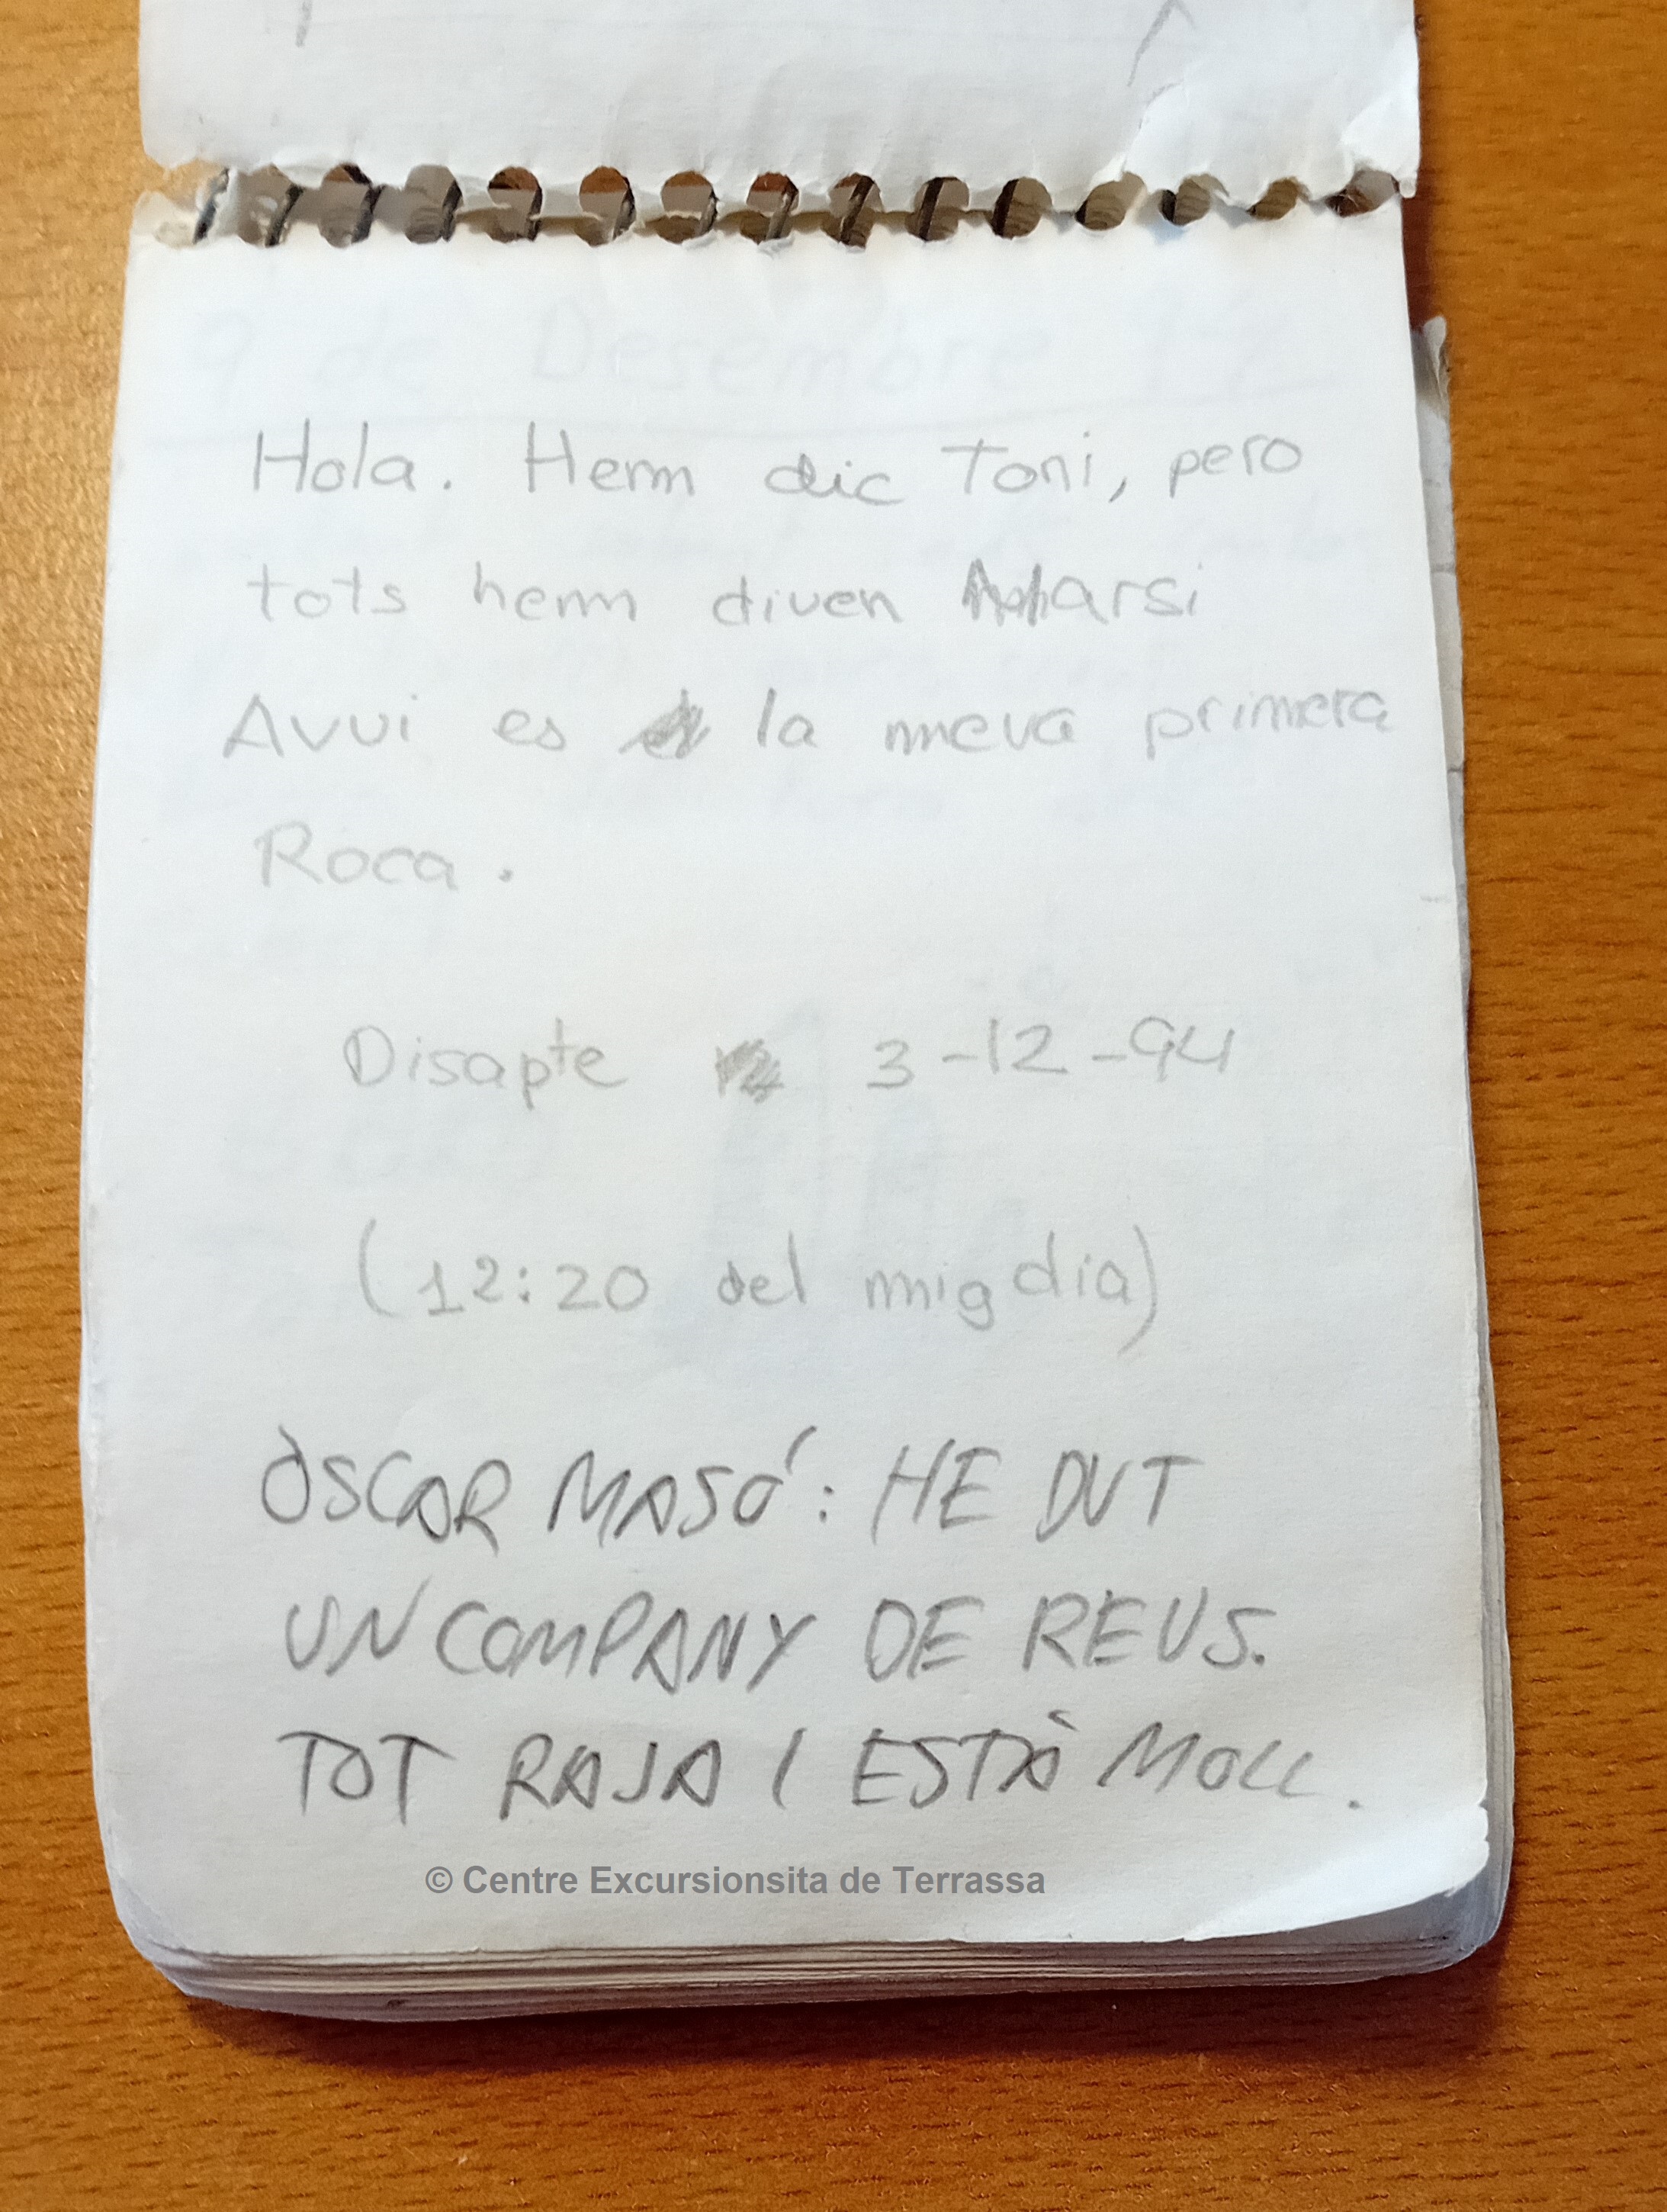 9 de Desembre
Hola. Hem dic Toni, pero
tots hem diuen Narsi
Avui es la meva primera
Roca.
Disapte 3-12-94
(12:20 del mig dia)
ÒSCAR MASÓ: HE DUT
UN COMPANY DE REUS.
TOT RAJA I ESTÀ MOLL.
© Centre Excursionsita de Terrassa